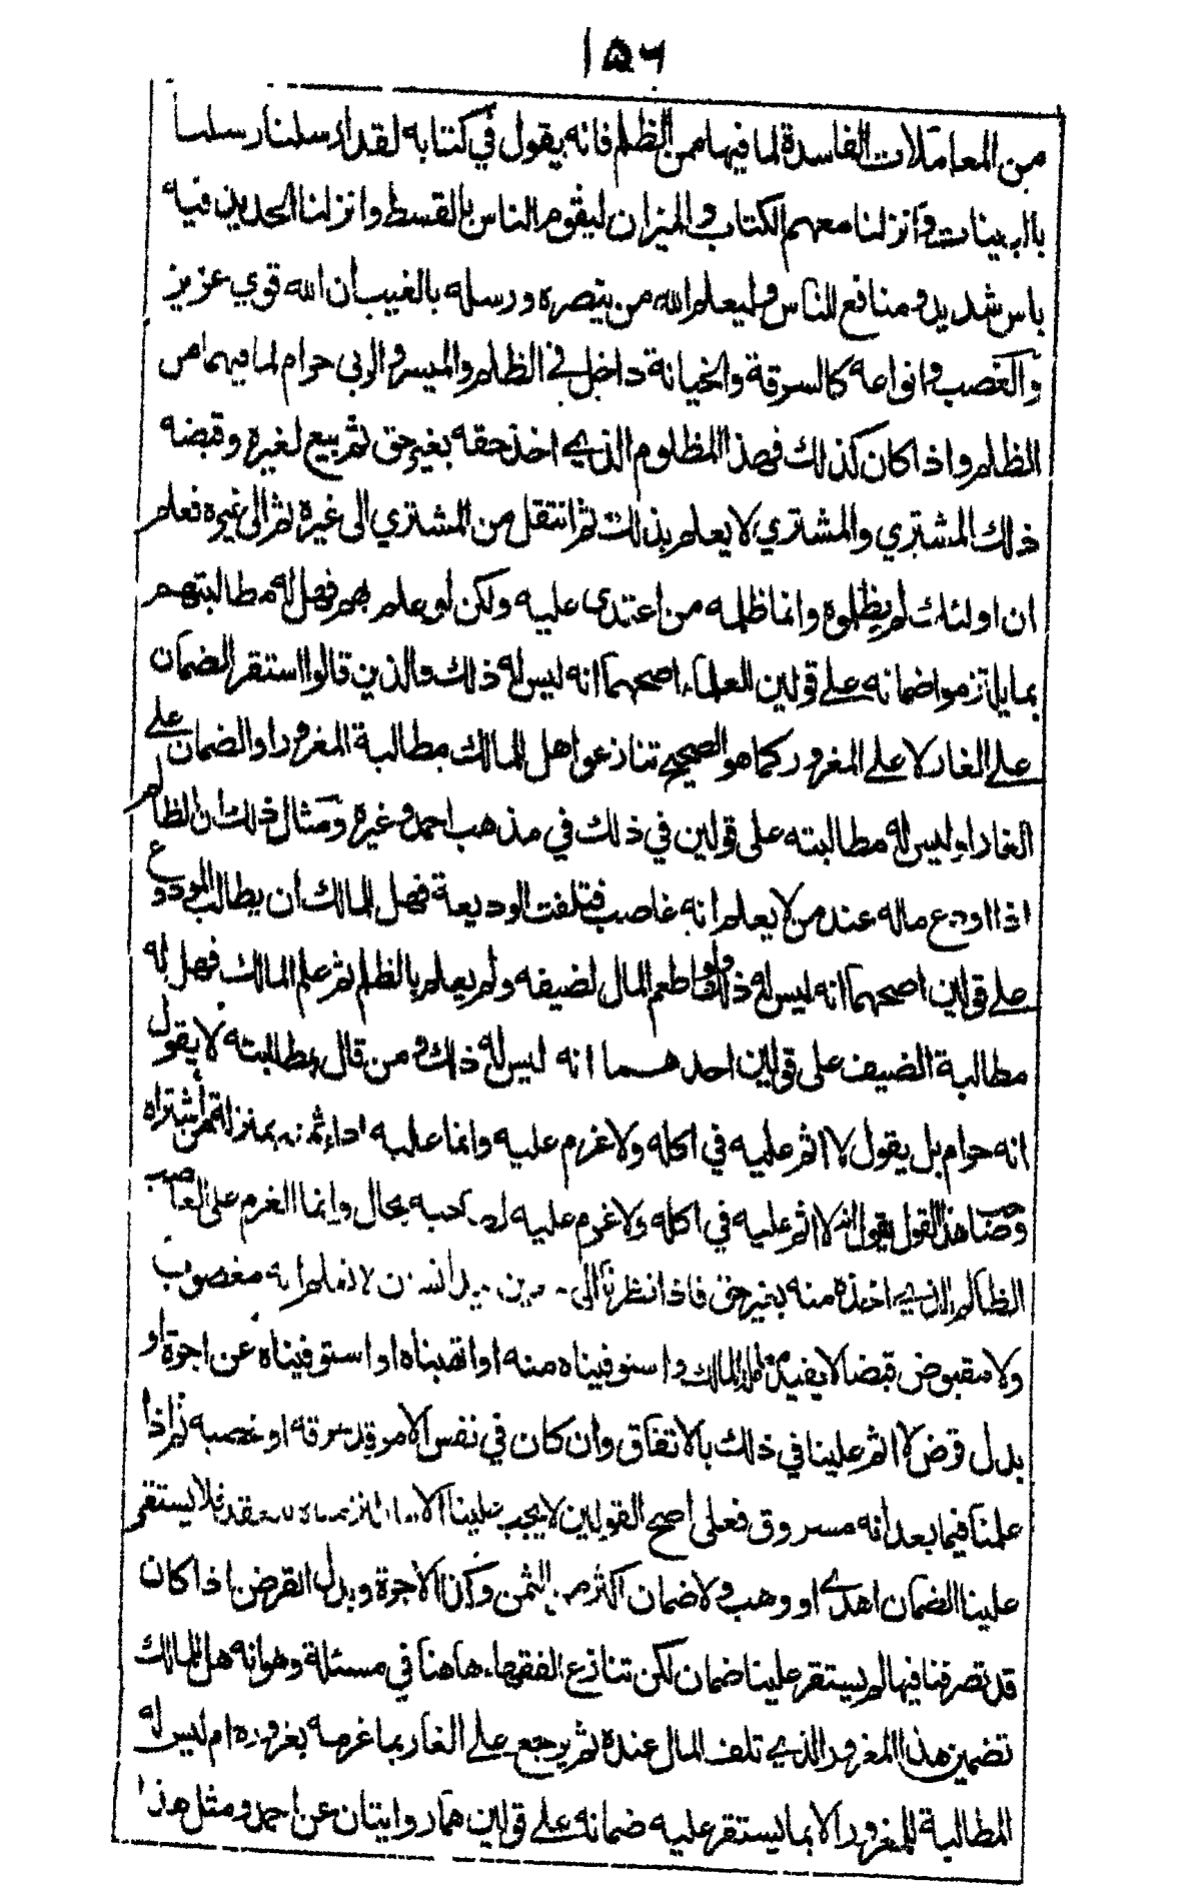 ١٥٦
من المعاملات الفاسدة لما فيها من الظلم فانه يقول في كتابه لقد ارسلنا رسلنا
بالبينات وانزلنا معهم الكتاب والميزان ليقوم الناس بالقسط وانزلنا الحديد فيه
باس شديد ومنافع للناس وليعلم الله من ينصره ورسله بالغيب ان الله قوي عزيز
والغصب وانواعه كالسرقة والخيانة داخل في الظلم والميسر والربى حرام لما فيهما من
الظلم واذا كان كذلك فهذا المظلوم الذي اخذ حقه بغير حق ثم بيع لغيره وقبضه
ذلك المشتري والمشتري لا يعلم بذلك ثم انتقل من المشتري الى غيره ثم الى غيره فعلم
ان اولئك لم يظلموه وانما ظلمه من اعتدى عليه ولكن لو علم بهم فهل له مطالبتهم
بما يلتزموا ضمانه على قولين للعلماء اصحهما انه ليس له ذلك والذين قالوا استقر الضمان
على الغار لا على المغرور كما هو الصحيح تنازعوا هل للمالك مطالبة المغرور او الضمان على
الغار او ليس له مطالبته على قولين في ذلك في مذهب احمد وغيره ومثال ذلك ان الظالم
اذا اودع ماله عند من لا يعلم انه غاصب فتلفت الوديعة فهل للمالك ان يطالب المودوع
على قولين اصحهما انه ليس له ذلك ولو اطعم المال لضيفه ولم يعلم بالظلم ثم علم المالك فهل له
مطالبة الضيف على قولين احدهما انه ليس له ذلك ومن قال بمطالبته لا يقول
انه حرام بل يقول لا اثم عليه في اكله ولا غرم عليه وانما عليه اداء ثمنه بمنزلة من اشتراه
هذا القول يقول انه لا اثم عليه في اكله ولا غرم عليه بحال وانما الغرم على الغاصب
الظالم الذي اخذه منه بغير حق فاذا نظرنا الى لا نعلم انه مغصوب
ولا مقبوض قبضا لا يفيد المالك واستوفيناه منه او اتهبناه او استوفيناه عن اجرة او
بدل قرض لا اثم علينا في ذلك بالاتفاق وان كان في نفس الامر قد سرقه او غصبه ثم اذا
علمنا فيما بعد انه مسروق فعلى اصح القولين لا يجب علينا الا فلا يستقر
علينا الضمان اهدى او وهب ولا ضمان اكثر من الثمن وكذا الاجرة وبدل القرض اذا كان
قد تصرفنا فيها لم يستقر علينا ضمان لكن تنازع الفقهاء هاهنا في مسئلة وهو انه هل للمالك
تضمين هذا المغرور الذي تلف المال عنده ثم يرجع على الغار بما غرمه بغروره ام ليس له
المطالبة للمغرور الا بما يستقر عليه ضمانه على قولين هما روايتان عن احمد ومثل هذا